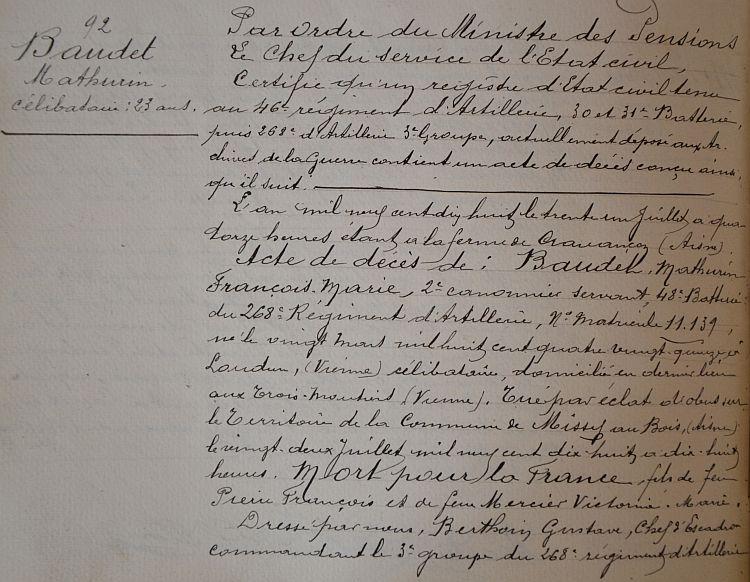 92
Baudet
Mathurin.
célibataire : 23 ans.
Par ordre du Ministre des Pensions
Le Chef du service de l'Etat civil,
Certifie qu'un registre d'Etat civil tenu
au 46e régiment d'Artillerie, 30 et 31e Batterie,
puis 268e d'Artillerie 3e Groupe, actuellement déposé aux Ar-
chives de la Guerre contient un acte de décès conçu ainsi
qu'il suit.
L'an mil neuf cent dix huit le trente un Juillet à qua-
torze heures, étant à la ferme de (Aisne)
Acte de décès de : Baudet, Mathurin
François, Marie, 2e canonnier servant, 48e Batterie
du 268e Régiment d'Artillerie, No Matricule 11.139,
né le vingt Mars mil huit cent quatre vingt quinze à
Loudun, (Vienne) célibataire, domicilié en dernier lieu
aux Trois-Moutiers (Vienne). Tué par éclat d'obus sur
le Territoire de la Commune de Missy au Bois, (Aisne)
le vingt-deux Juillet mil neuf cent dix-huit à dix-huit
heures. Mort pour la France, fils de feu
Pierre François et de feue Mercier Victorine. Marie.
Dressé par nous, Berthoin Gustave, Chef d'Escadron
commandant le 3e groupe du 268e régiment d'Artillerie